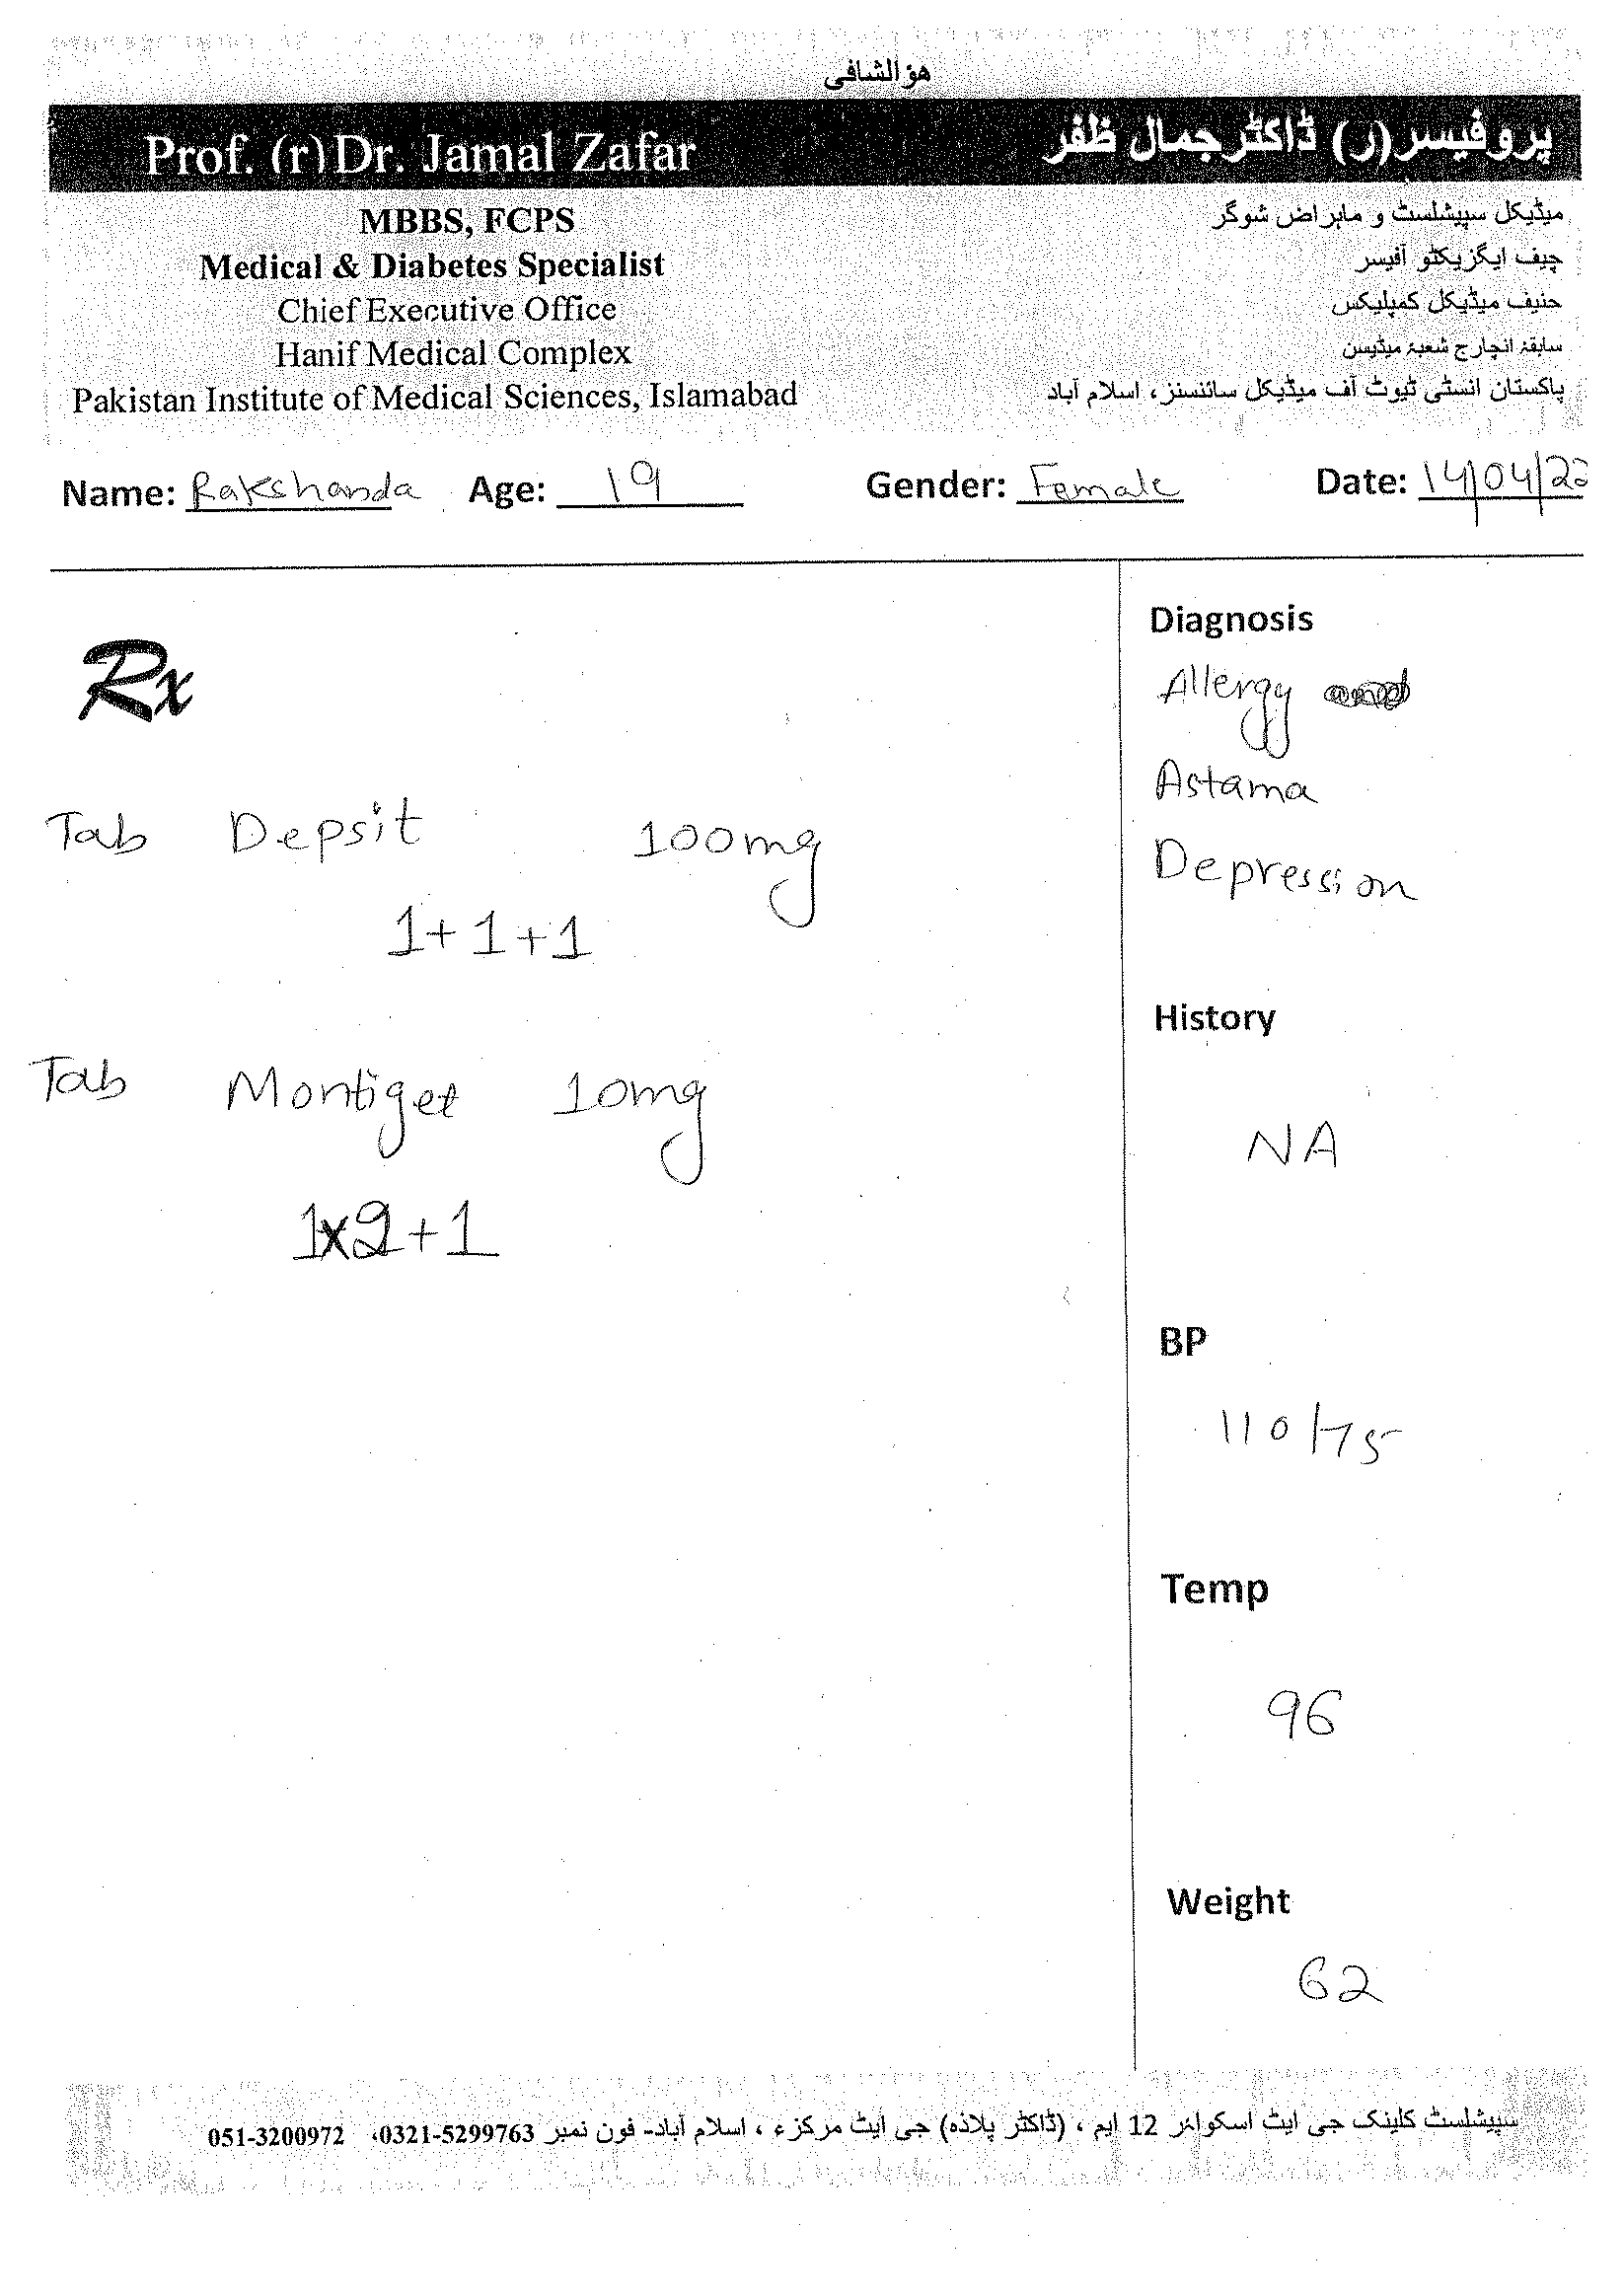 هوَالشافی
Prof. (r) Dr. Jamal Zafar
پروفیسر(ر) ڈاکٹرجمال ظفر
MBBS, FCPS
Medical & Diabetes Specialist
Chief Executive Office
Hanif Medical Complex
Pakistan Institute of Medical Sciences, Islamabad
میڈیکل سپیشلسٹ و ماہراض شوگر
چیف ایگزیکٹو آفیسر
حنیف میڈیکل کمپلیکس
سابقہ انچارج شعبہ میڈیسن
پاکستان انسٹی ٹیوٹ آف میڈیکل سائنسنز، اسلام آباد
Name: Rakshanda Age: 19 Gender: Female Date: 14/04/22
Rx
Tab Depsit 100mg
1+1+1
Tab Montiget 10mg
1x2+1
Diagnosis
Allergy
Astama
Depression
History
NA
BP
110/75
Temp
96
Weight
62
سپیشلسٹ کلینک جی ایٹ اسکوائر 12 ایم ، (ڈاکٹر پلاذہ) جی ایٹ مرکزء ، اسلام آباد- فون نمبر 0321-5299763، 051-3200972